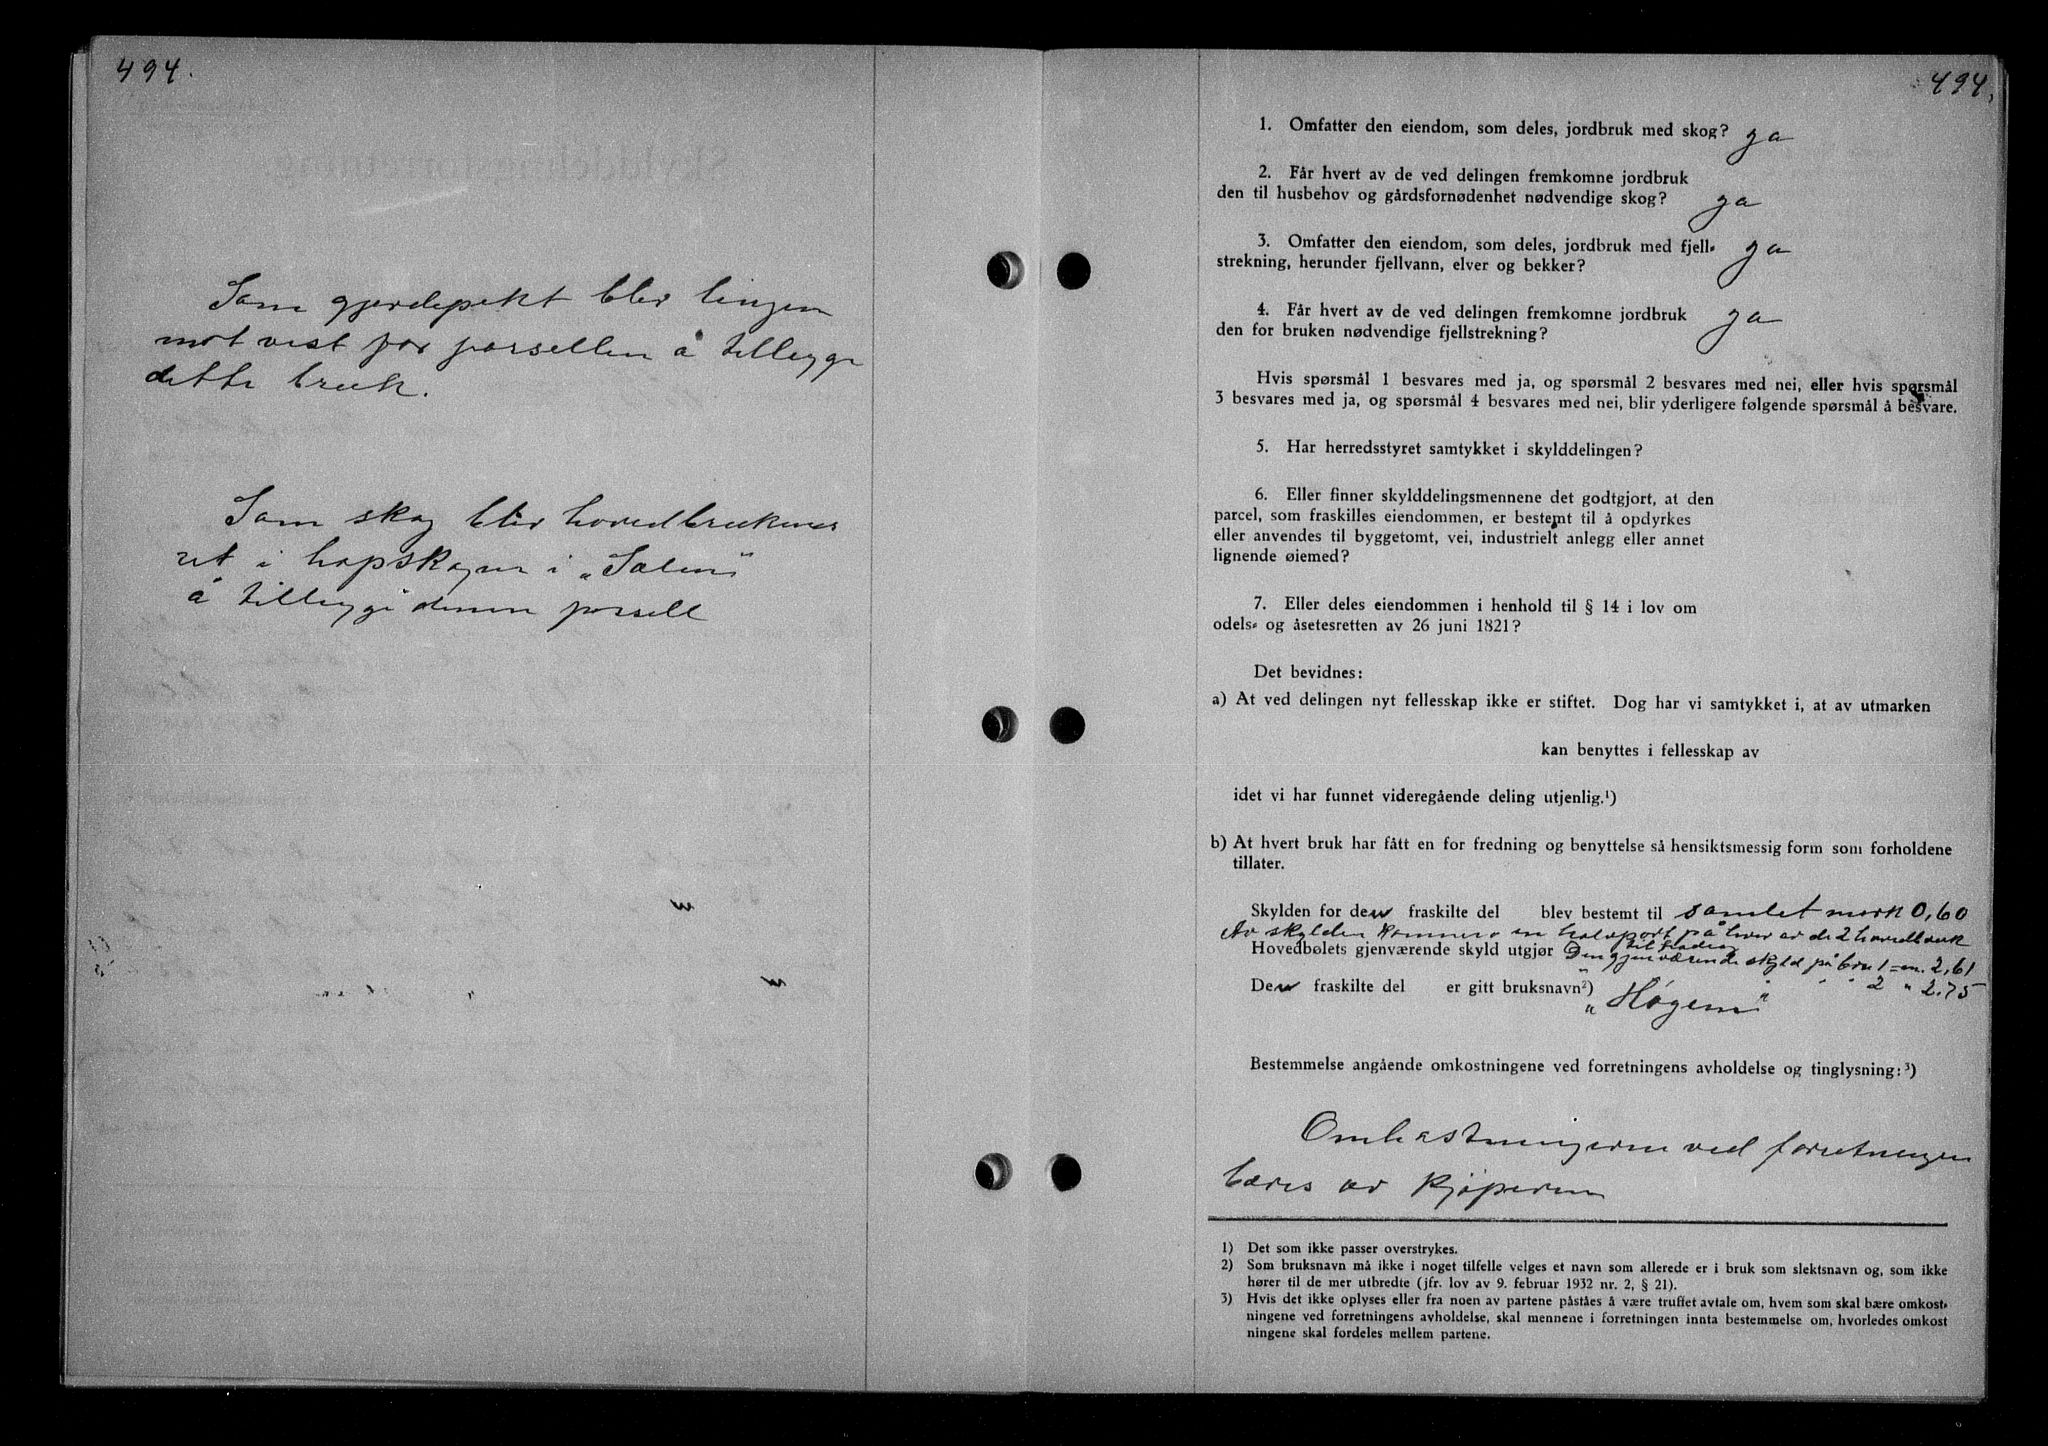 494.
Som gjerdepekt blir lingen
mot vest for parsellen å tillegge
dette bruk.
Som skog blir hovedbrukenes
ret i hapskogen i „Salen"
å tillegge denne parsell
494.
1. Omfatter den eiendom, som deles, jordbruk med skog? ja
2. Får hvert av de ved delingen fremkomne jordbruk
den til husbehov og gårdsfornødenhet nødvendige skog? ja
3. Omfatter den eiendom, som deles, jordbruk med fjell- ja
strekning, herunder fjellvann, elver og bekker?
4. Får hvert av de ved delingen fremkomne jordbruk ja
den for bruken nødvendige fjellstrekning?
Hvis spørsmål 1 besvares med ja, og spørsmål 2 besvares med nei, eller hvis spørsmål
3 besvares med ja, og spørsmål 4 besvares med nei, blir yderligere følgende spørsmål å besvare.
5. Har herredsstyret samtykket i skylddelingen?
6. Eller finner skylddelingsmennene det godtgjort, at den
parcel, som fraskilles eiendommen, er bestemt til å opdyrkes
eller anvendes til byggetomt, vei, industrielt anlegg eller annet
lignende øiemed?
7. Eller deles eiendommen i henhold til § 14 i lov om
odels- og åsetesretten av 26 juni 1821?
Det bevidnes:
a) At ved delingen nyt fellesskap ikke er stiftet. Dog har vi samtykket i, at av utmarken
kan benyttes i fellesskap av
idet vi har funnet videregående deling utjenlig.¹)
b) At hvert bruk har fått en for fredning og benyttelse så hensiktsmessig form som forholdene
tillater.
Skylden for den fraskilte del blev bestemt til samlet mark 0,60
Av skylden kommer en halvport på hver av de 2 hovedbruk
til fradrag
Hovedbølets gjenværende skyld utgjør Den gjenværende skyld på bru 1 = m. 2,61
" " 2 " 2.75
Den fraskilte del er gitt bruksnavn²) „Høgem"
Bestemmelse angående omkostningene ved forretningens avholdelse og tinglysning:³)
Omkostningerne ved forretningen
bæres av kjøperen
1) Det som ikke passer overstrykes.
2) Som bruksnavn må ikke i noget tilfelle velges et navn som allerede er i bruk som slektsnavn og, som ikke
hører til de mer utbredte (jfr. lov av 9. februar 1932 nr. 2, § 21).
3) Hvis det ikke oplyses eller fra noen av partene påståes å være truffet avtale om, hvem som skal bære omkost-
ningene ved forretningens avholdelse, skal mennene i forretningen innta bestemmelse om, hvorledes omkost
ningene skal fordeles mellem partene.